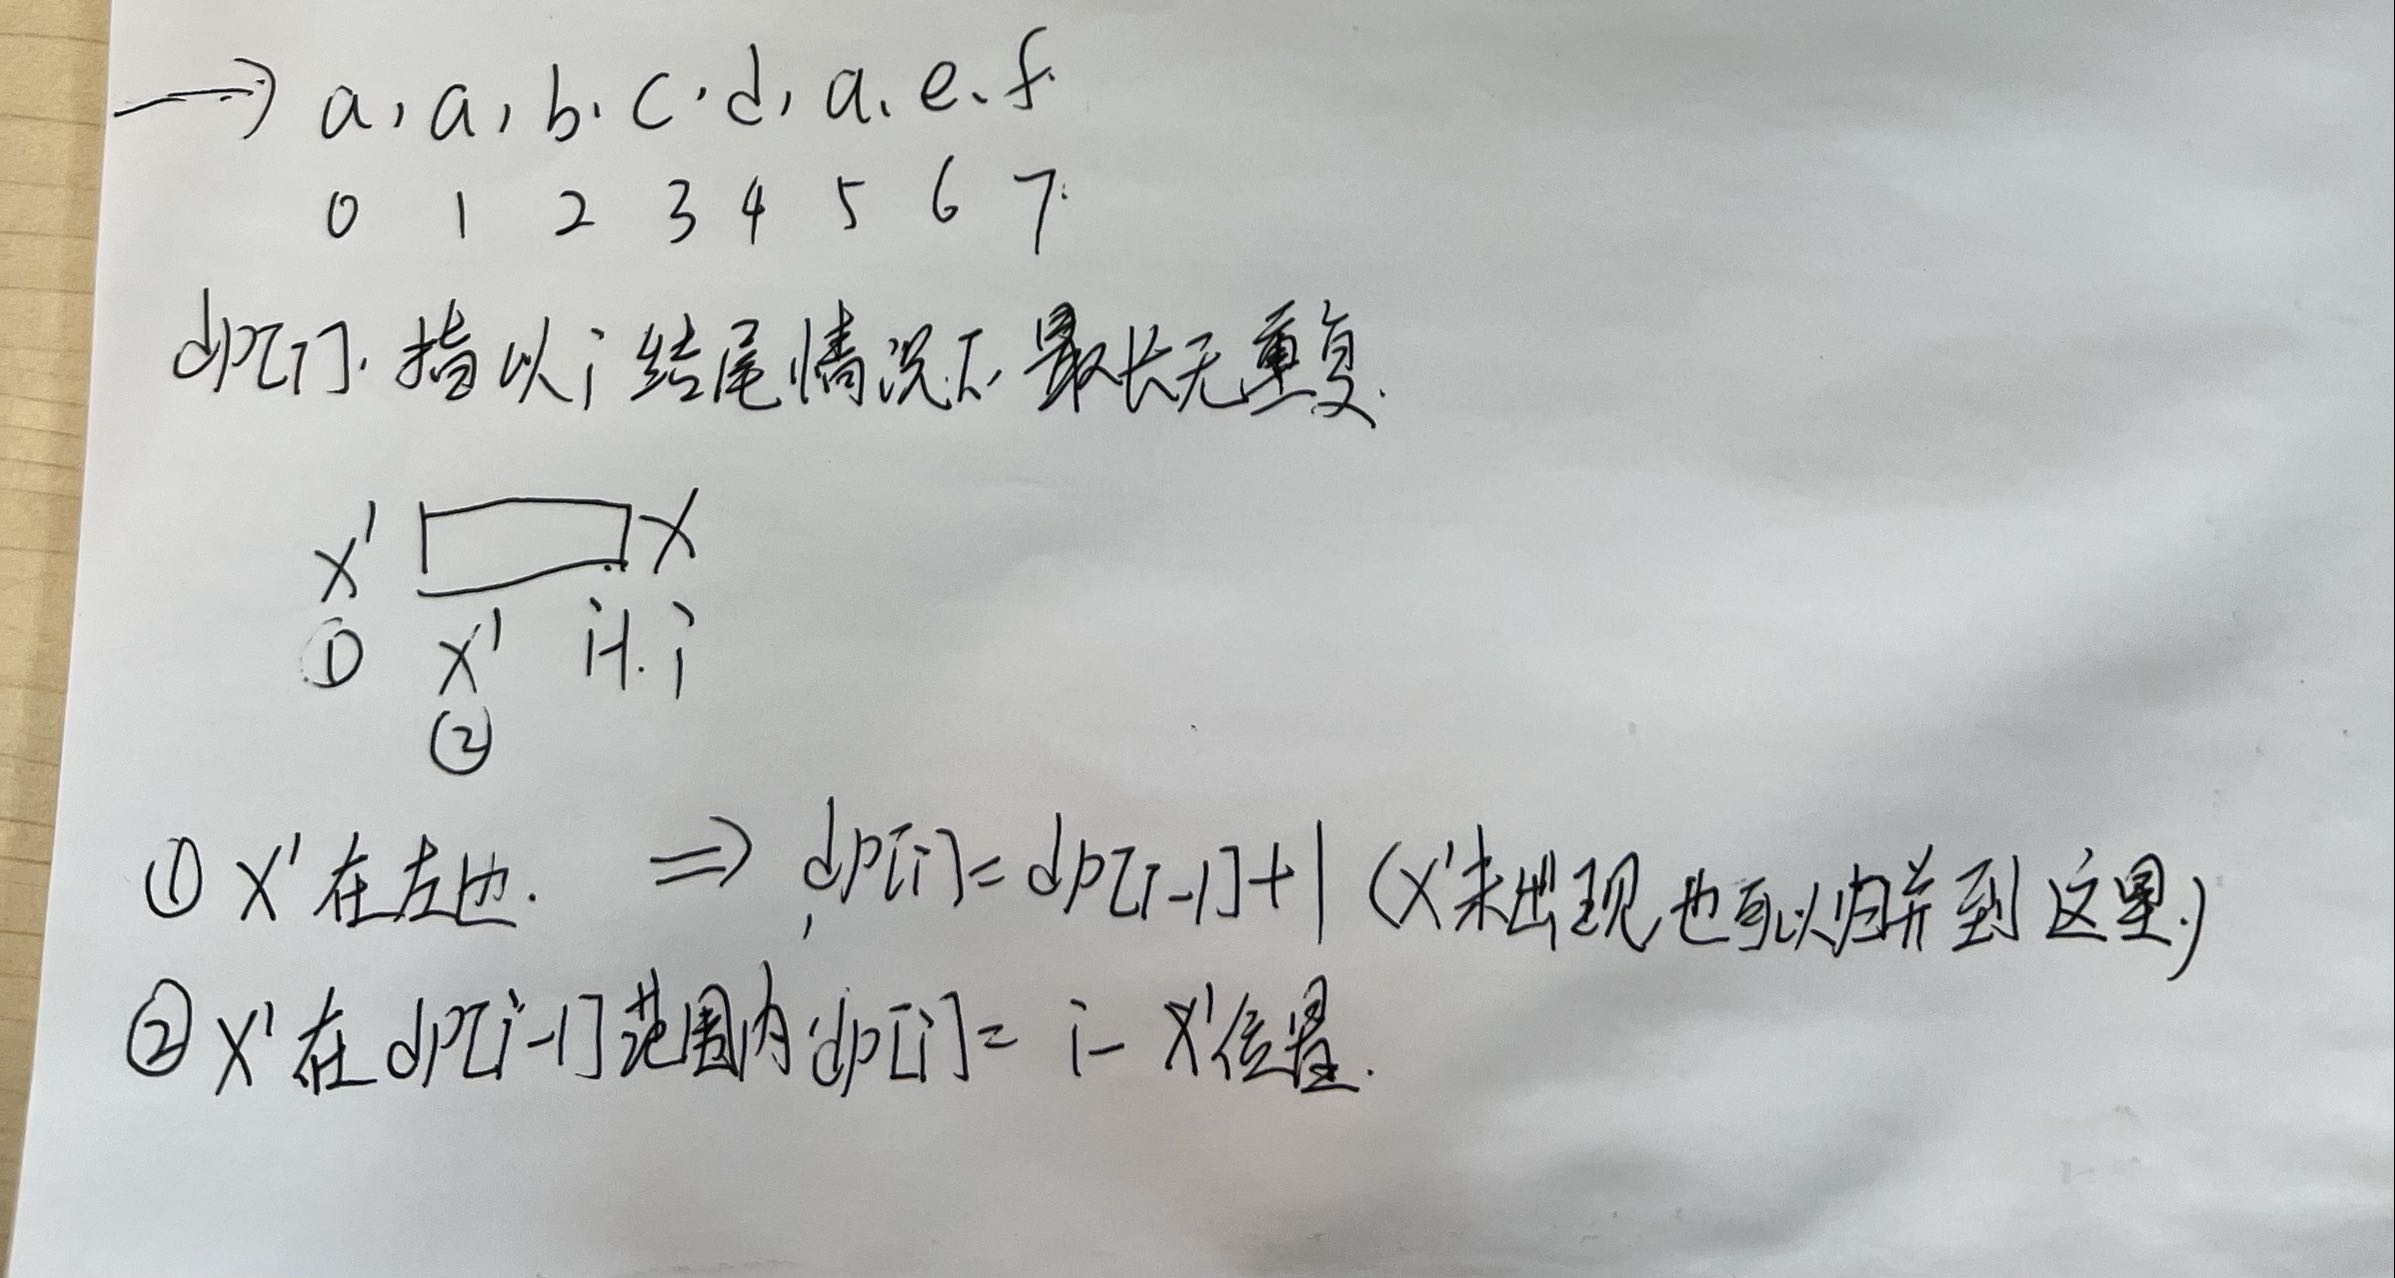 → a, a, b, c, d, a, e, f.
0 1 2 3 4 5 6 7.
dp[i]. 指以i结尾情况下最长无重复.
x' x
① x' i-1. i
②
① x'在左边. ⇒ dp[i]=dp[i-1]+1 (x'未出现也可以归并到这里.)
② x'在dp[i-1]范围内 dp[i]= i- x'位置.